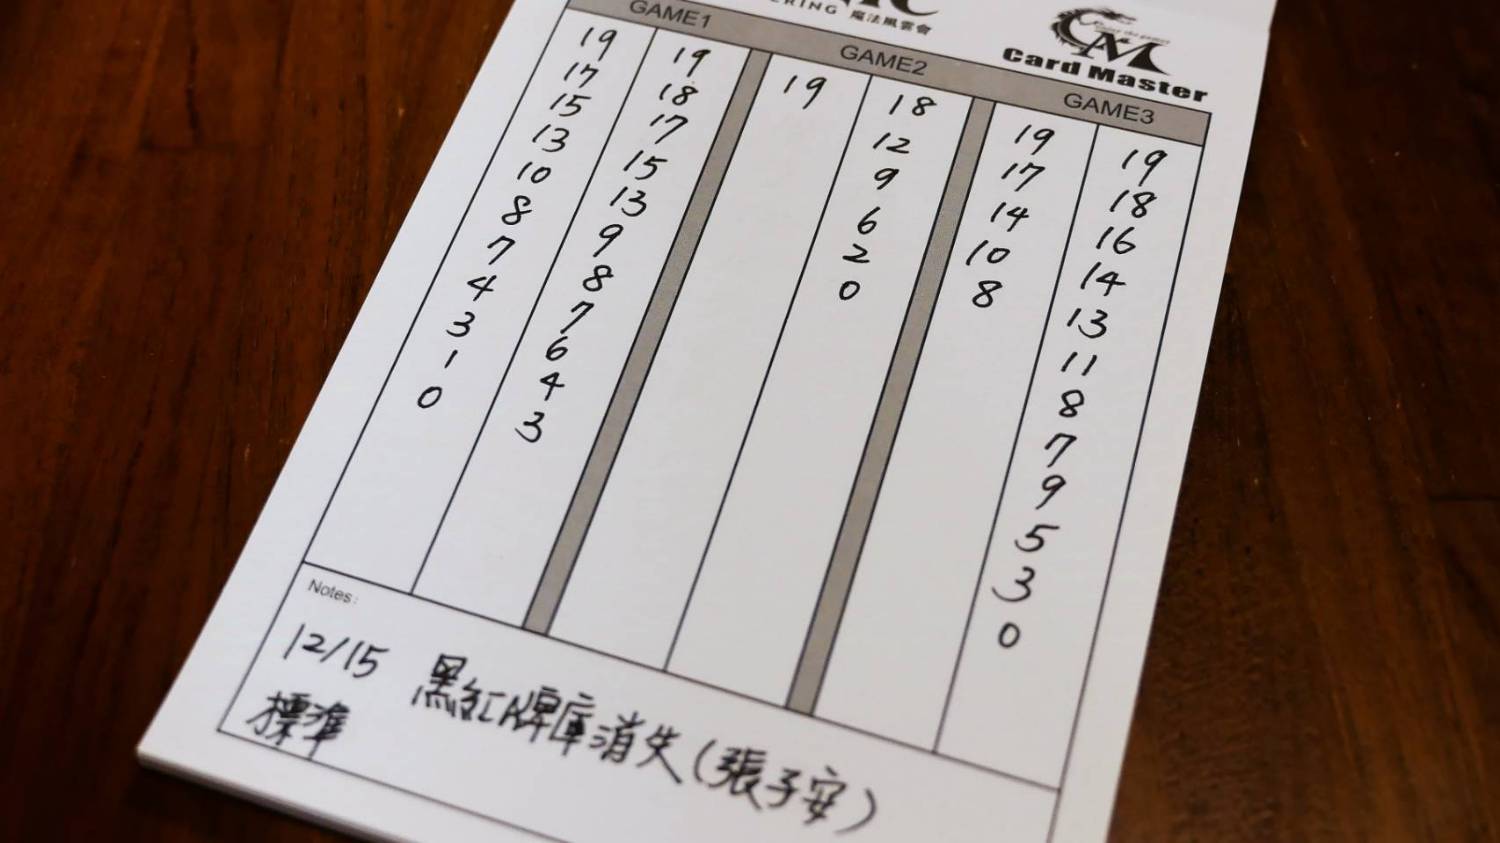 ERING 魔法風雲會
Card Master
GAME1
GAME2
GAME3
19
17
15
13
10
8
7
4
3
1
0
19
18
17
15
13
9
8
7
6
4
3
19
18
12
9
6
2
0
19
17
14
10
8
19
18
16
14
13
11
8
7
9
5
3
0
Notes:
12/15 黑紅牌庫消失(張子安)
標準